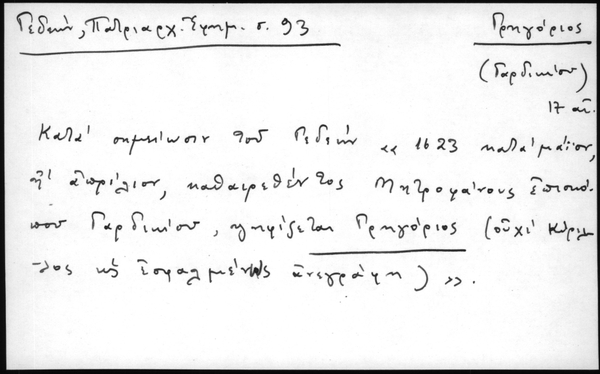 Γεδεών, Πατριαρχ. Ἐφημ. σ. 93
Γρηγόριος
(Γαρδικίου)
17 αἰ.
Κατά σημείωσιν τοῦ Γεδεών «1623 κατά μάϊον,
ἤ ἀπρίλιον, καθαιρεθέντος Μητροφάνους ἐπισκό-
που Γαρδικίου, ψηφίζεται Γρηγόριος (οὐχί Κύριλ-
-λος ὡς ἐσφαλμένως ἀνεγράφη)».